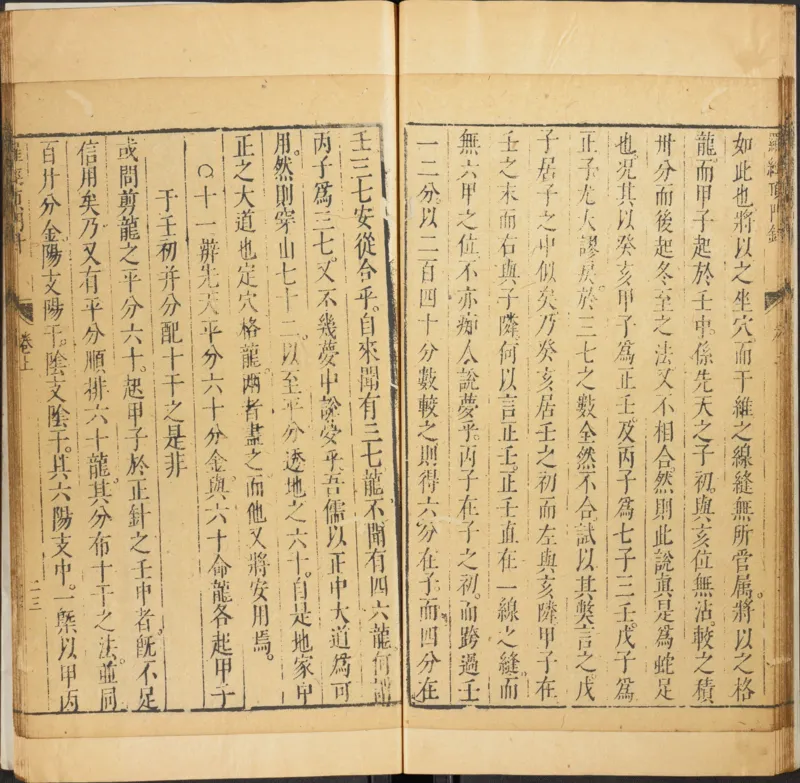 如此也將以之坐穴而干維之線縫無所管属。將以之格
龍。而甲子起於壬中。係先天之子初。與亥位無沾。較之積
卅分而後起冬至之法又不相合。然則此說真是為蛇足
也。况其以癸亥甲子為正壬。及丙子為七子三壬。戊子為
正子。尤大謬戾。於三七之數全然不合。試以其槩言之。戊
子居子之中似矣。乃癸亥居壬之初而左與亥隣。甲子在
壬之末而右與子隣。何以言正壬。正壬直在一線之縫。而
無六甲之位。不亦痴人說夢乎。丙子在子之初。而跨過壬
一二分。以二百四十分數較之。則得六分在子。而四分在
壬。三七安從合乎。自來聞有三七龍。不聞有四六龍。何謂
丙子為三七。又不幾夢中說夢乎。吾儒以正中大道為可
用。然則穿山七十二。以至平分透地之六十。自是地家中
正之大道也。定穴格龍。兩者盡之。而他又將安用焉。
○十一辯先天平分六十分金。與六十命龍各起甲子
于壬初并分配十干之是非
或問剪龍之平分六十。起甲子於正針之壬中者。既不足
信用矣。乃又有平分順排六十龍。其分布十干之法。並同
百廿分金。陽支陽干。陰支陰干。其六陽支中。一槩以甲丙
卷上
二三